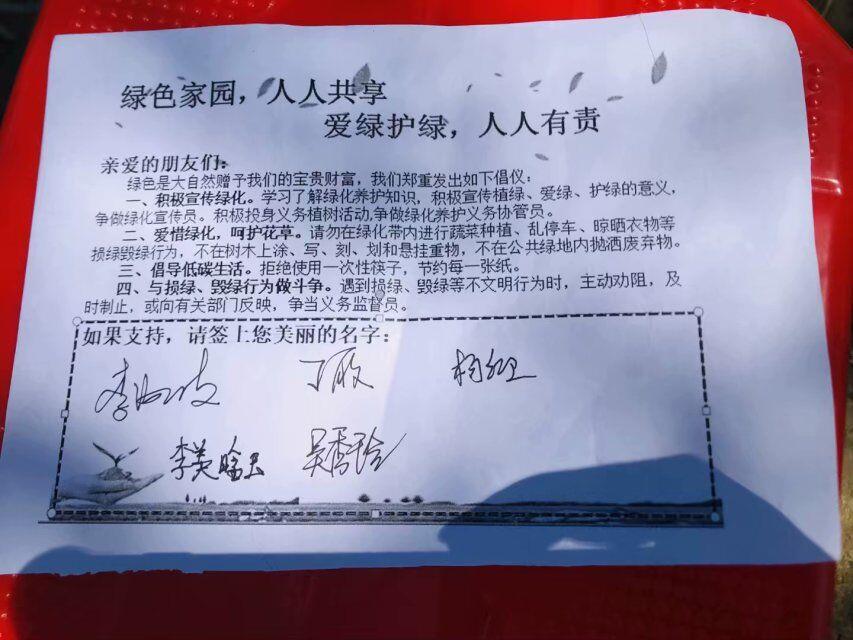 绿色家园，人人共享
爱绿护绿，人人有责
亲爱的朋友们：
绿色是大自然赠予我们的宝贵财富，我们郑重发出如下倡仪：
一、积极宣传绿化。学习了解绿化养护知识，积极宣传植绿、爱绿、护绿的意义，
争做绿化宣传员。积极投身义务植树活动,争做绿化养护义务协管员。
二、爱惜绿化，呵护花草。请勿在绿化带内进行蔬菜种植、乱停车、晾晒衣物等
损绿毁绿行为，不在树木上涂、写、刻、划和悬挂重物，不在公共绿地内抛洒废弃物。
三、倡导低碳生活。拒绝使用一次性筷子，节约每一张纸。
四、与损绿、毁绿行为做斗争。遇到损绿、毁绿等不文明行为时，主动劝阻，及
时制止，或向有关部门反映，争当义务监督员。
如果支持，请签上您美丽的名字：